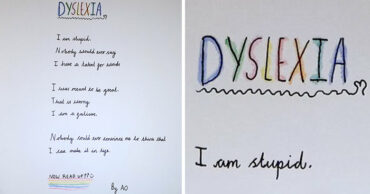 DYSLEXIA
I am stupid.
Nobody would ever say
I have a talent for words
I was meant to be great.
That is wrong.
I am a failure.
Nobody could ever convince me to think that
I can make it in life.
NOW READ UP
By AO
DYSLEXIA
I am stupid.